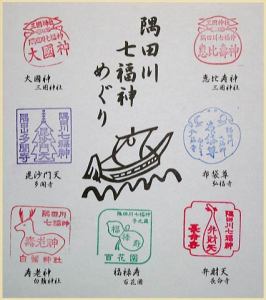 隅田川
七福神
めぐり
隅田川七福神
大國神
三囲神社
大國神
三囲神社
隅田川七福神
恵比寿神
三囲神社
恵比寿神
三囲神社
隅田川七福神
毘沙門天
隅田山多聞寺
毘沙門天
多聞寺
布袋尊
弘福寺
隅田川
七福神
寿老神
白鬚神社
寿老神
白鬚神社
隅田川七福神
福禄寿
百花園
福禄寿
百花園
隅田川
七福神
弁財天
長命寺
弁財天
長命寺